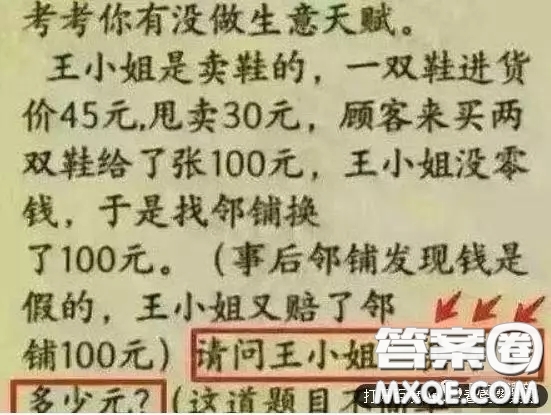 考考你有没做生意天赋。
王小姐是卖鞋的，一双鞋进货
价45元,甩卖30元，顾客来买两
双鞋给了张100元，王小姐没零
钱，于是找邻铺换
了100元。（事后邻铺发现钱是
假的，王小姐又赔了邻
铺100元）请问王小姐
答案圈
多少元？（这道题目不
MXQE.COM